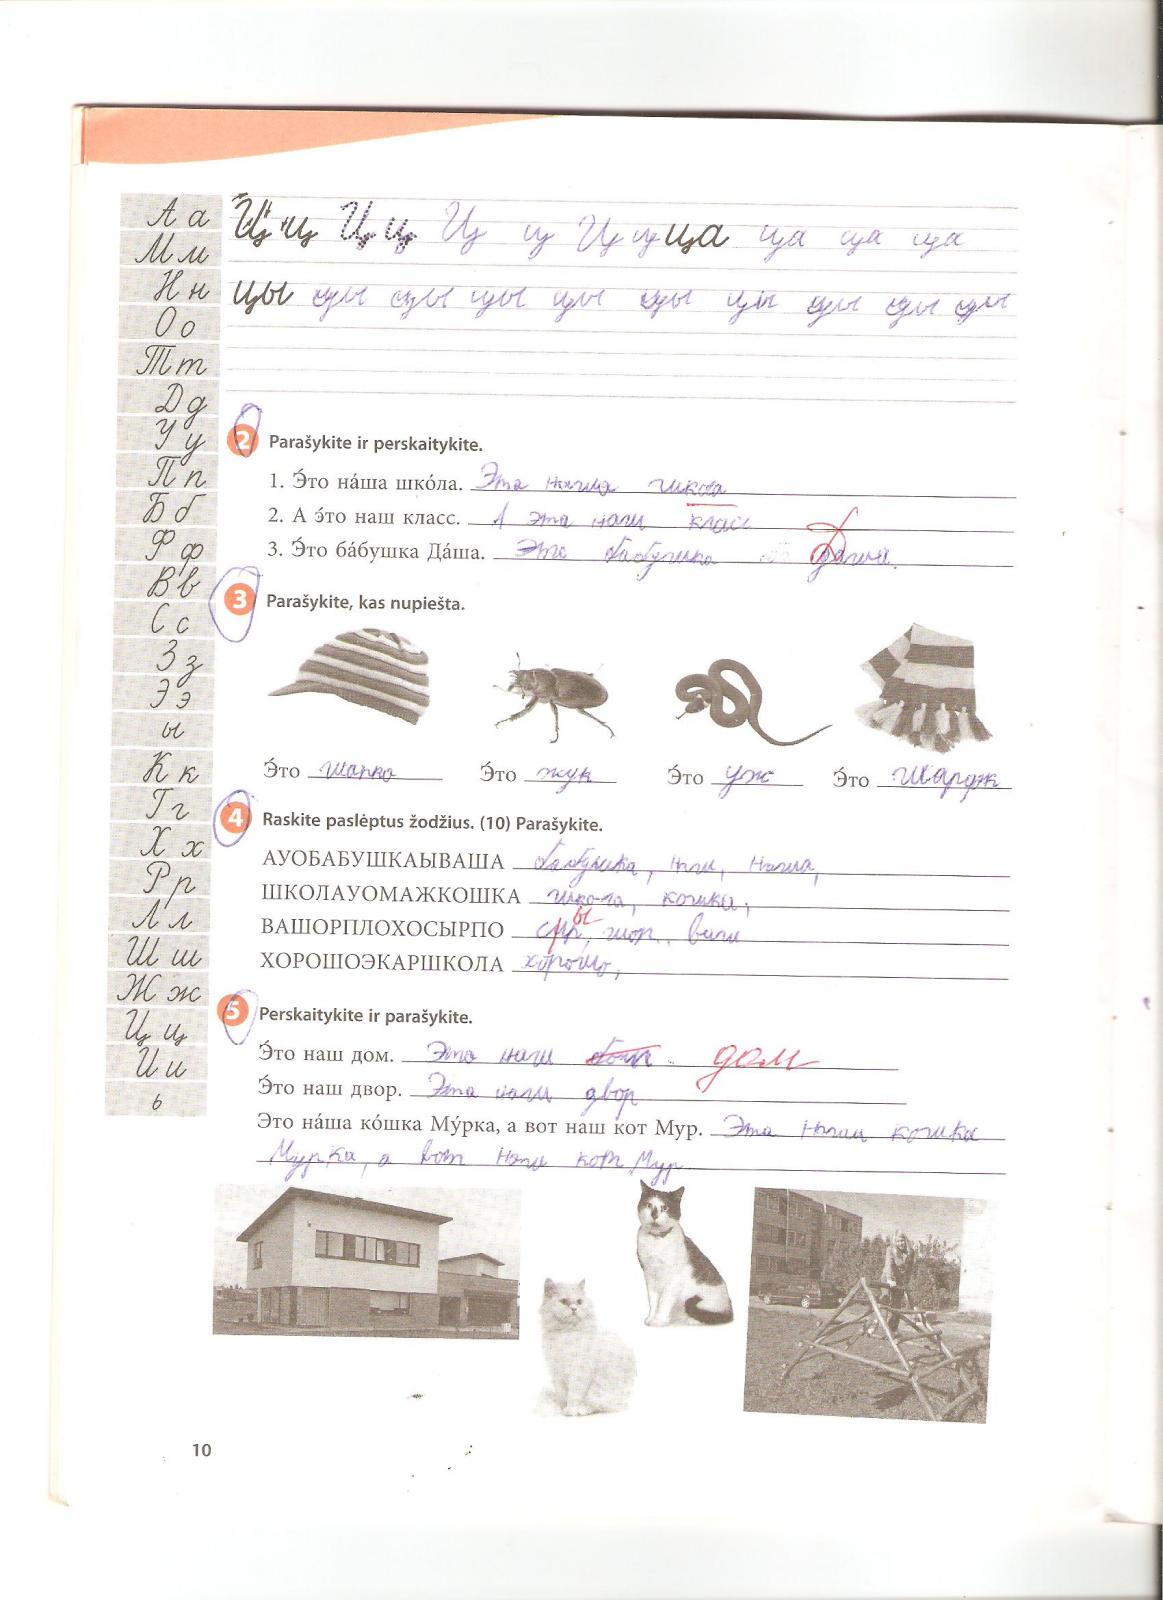 А а
М м
Н н
О о
Т т
Д д
У у
П п
Б б
Ф ф
В в
С с
З з
Э э
ы
К к
Г г
Х х
Р р
Л л
Ш ш
Ж ж
Ц ц
И и
ь
Ц ц Ц ц Ц ц Ц ц ца ца ца ца
цы цы цы цы цы цы цы цы цы цы
2 Parašykite ir perskaitykite.
1. Э́то на́ша шко́ла. Эта наша
2. А э́то наш класс. А эта наш класс
3. Э́то ба́бушка Да́ша. Это бабушка Даша.
3 Parašykite, kas nupiešta.
Э́то шапка Э́то жук Э́то уж Э́то шардж
4 Raskite paslėptus žodžius. (10) Parašykite.
АУОБАБУШКАЫВАША бабушка, наш, наша,
ШКОЛАУОМАЖКОШКА школа, кошка,
ы
ВАШОРПЛОХОСЫРПО шор ваш
ХОРОШОЭКАРШКОЛА хорошо,
5 Perskaitykite ir parašykite.
Э́то наш дом. Это наш дом
Э́то наш двор. Эта наш двор
Это на́ша ко́шка Му́рка, а вот наш кот Мур. Эта наша кошка
Мурка, а вот наш кот Мур
10